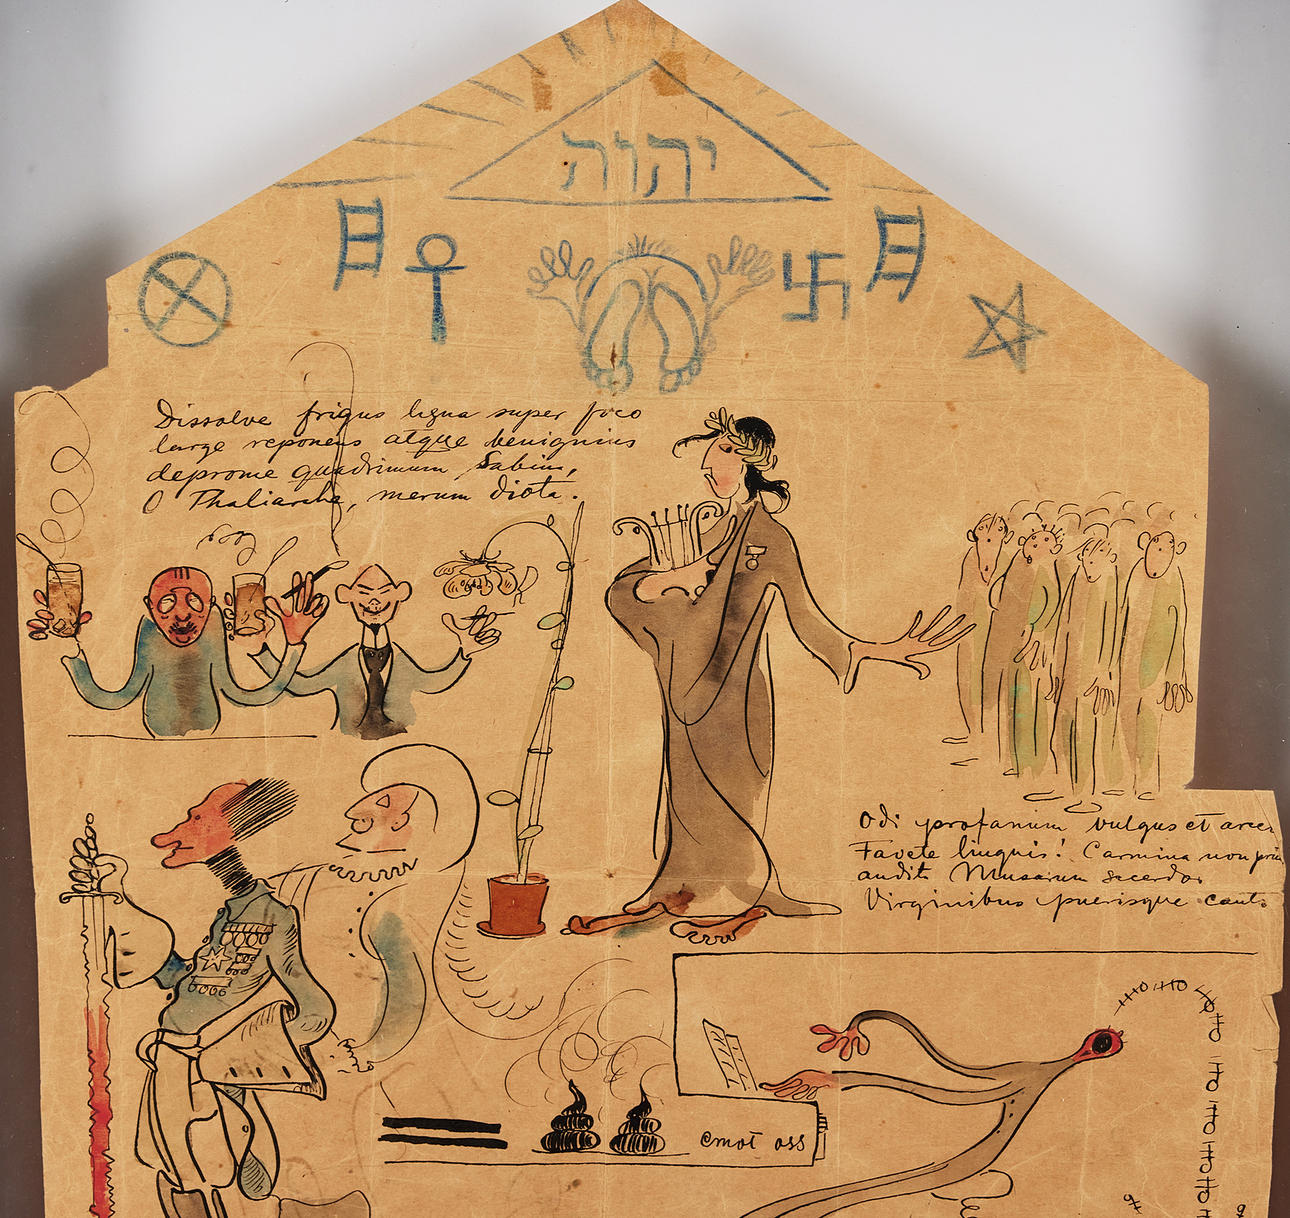 יהוה
Dissolve frigus ligna super foco
large reponens atque benignius
deprome quadrimum Sabin,
O Thaliarche, merum diota.
Odi profanum vulgus et arce
Favete linguis! Carmina non priu
audita Musarum sacerdos
Virginibus puerisque canto
emot oss